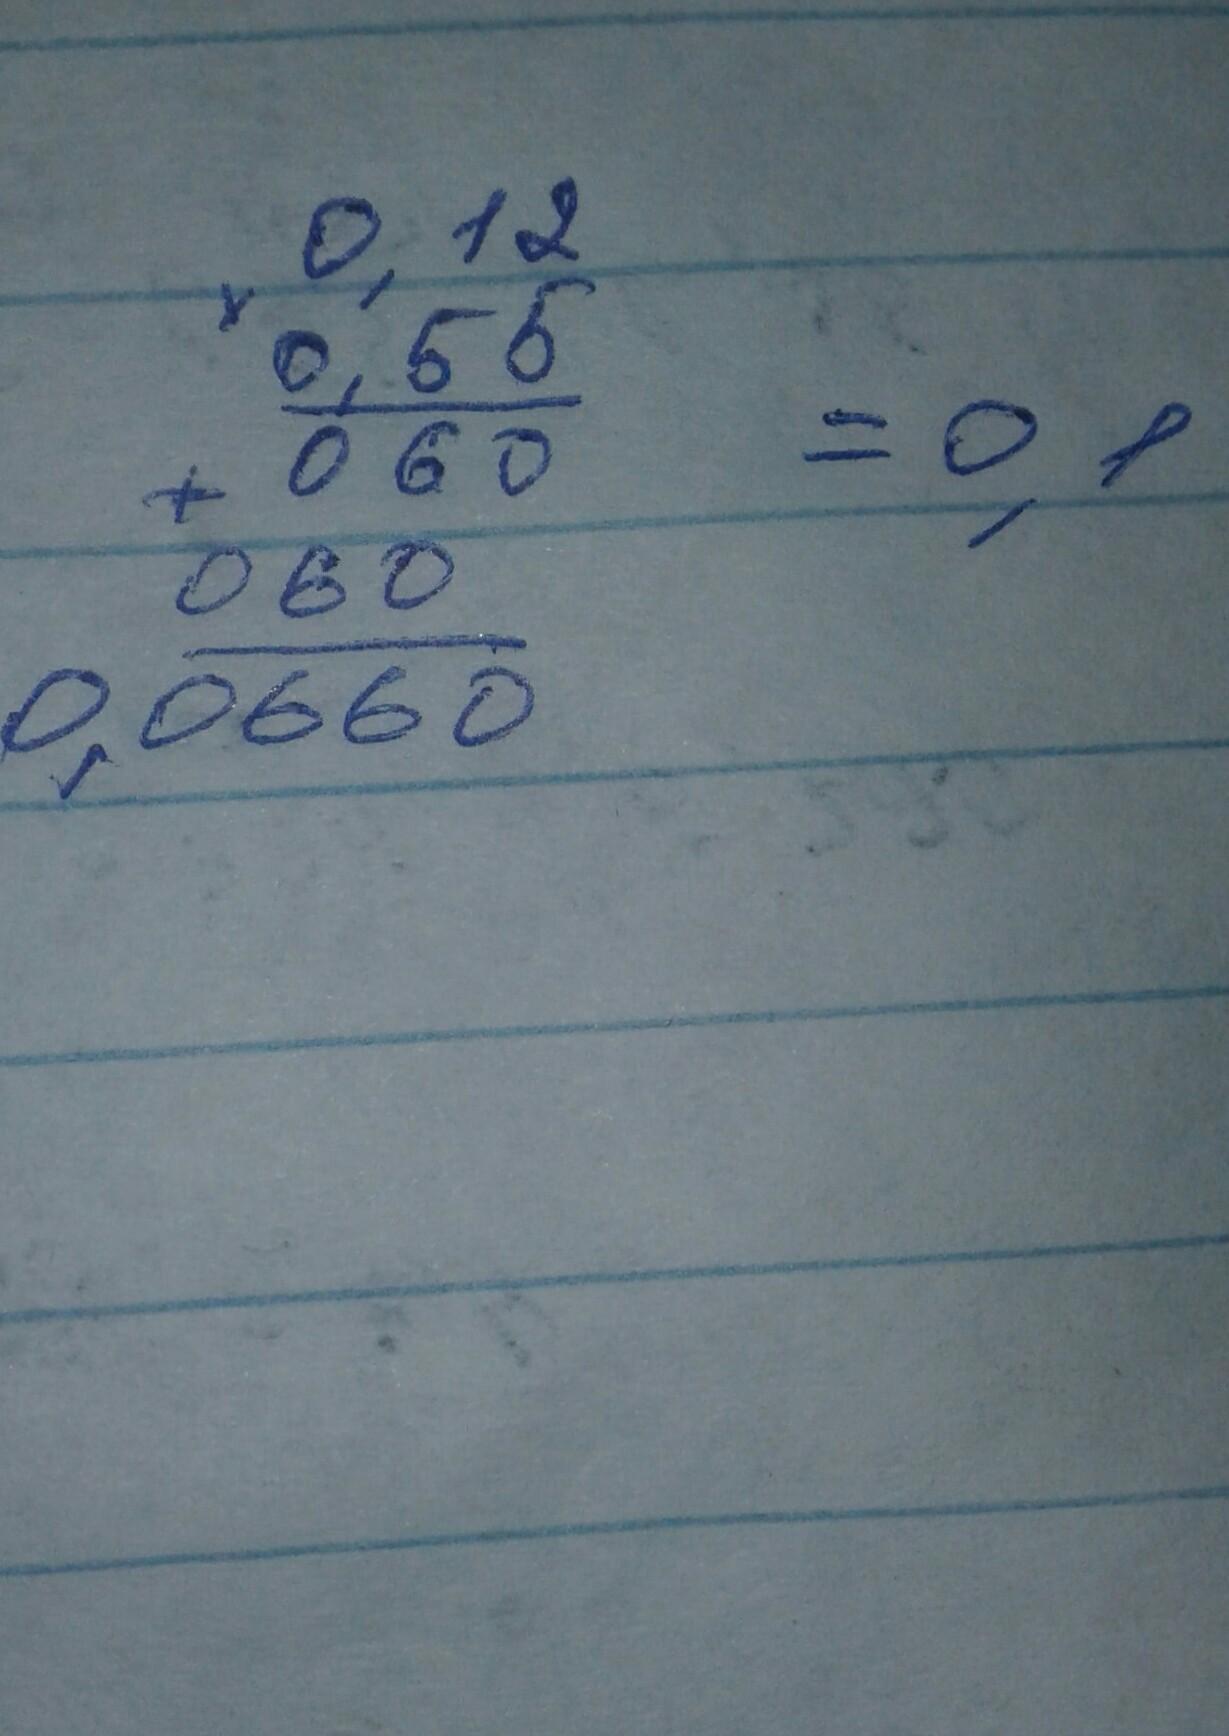 0,12
× 0,55
060 = 0,1
+
060
0,0660